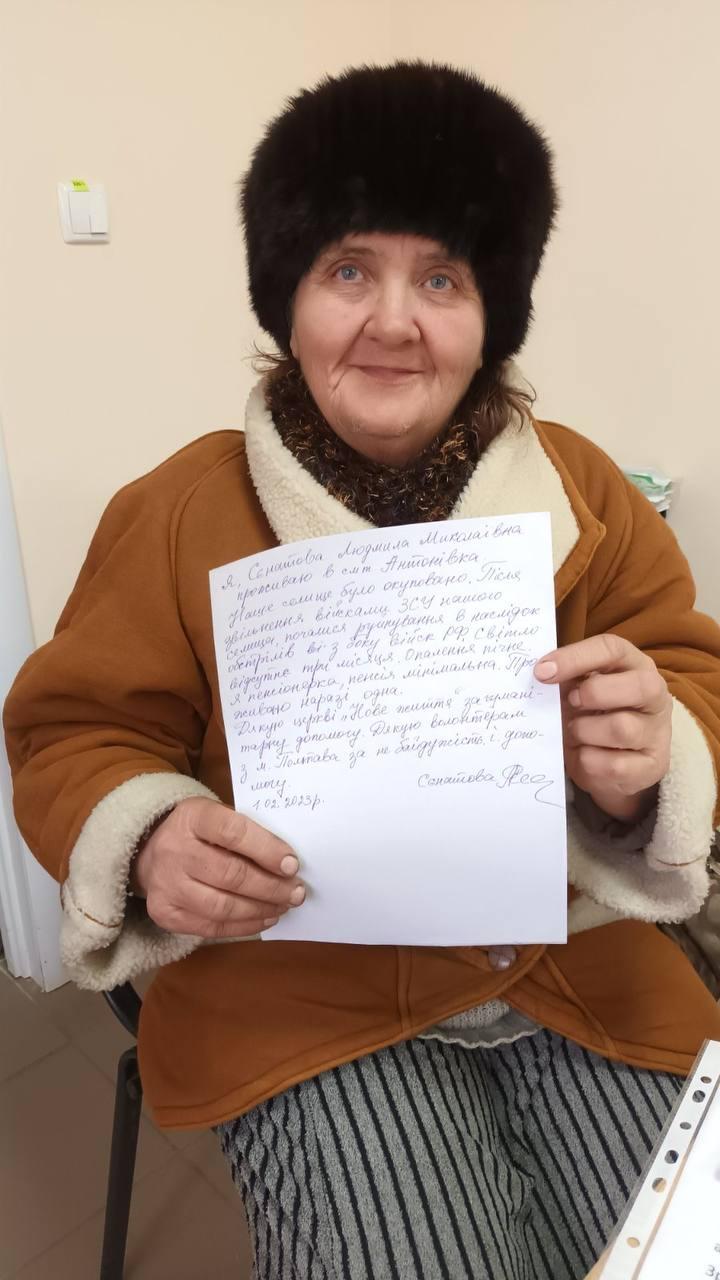 Я, Сенатова Людмила Миколаївна
проживаю в смт Антонівка.
Наше селище було окуповано. Після
звільнення військами ЗСУ нашого
селища, почалися руйнування в наслідок
обстрілів ві з боку військ РФ. Світло
відсутнє три місяця. Опалення пічне.
Я пенсіонерка, пенсія мінімальна. Про
живаю наразі одна.
Дякую церкві "Нове життя" за гумані-
тарну допомогу. Дякую волонтерам
з м. Полтава за не байдужість і допо-
могу.
Сенатова
1.02.2023р.